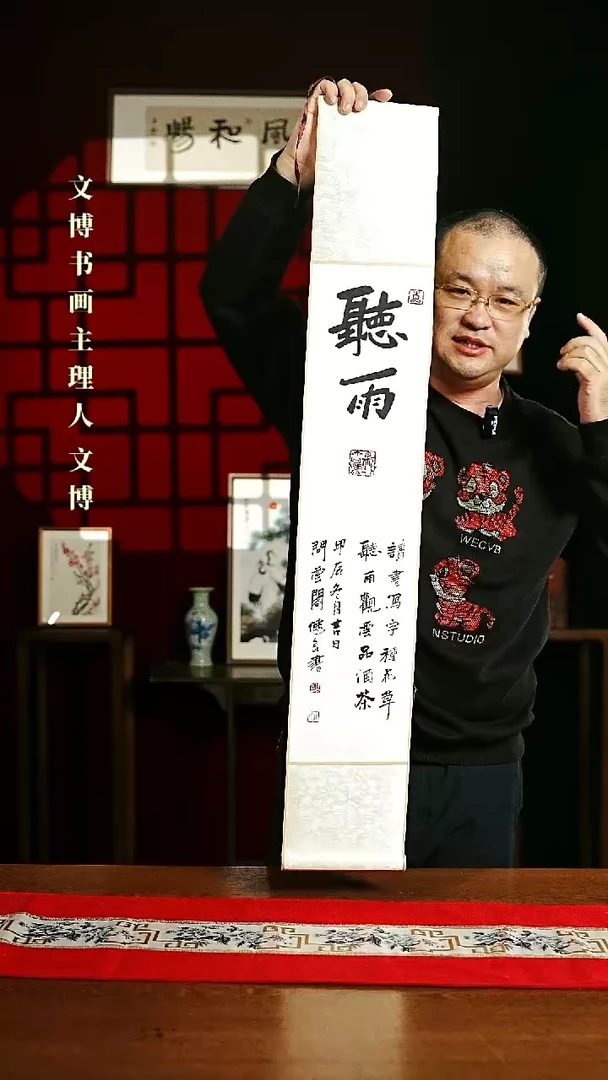 風和暢
文博书画主理人 文博
聽雨
讀書寫字種花草
聽雨觀雲品酒茶
甲辰冬月吉日
問雲閣
WECVB
NSTUDIO